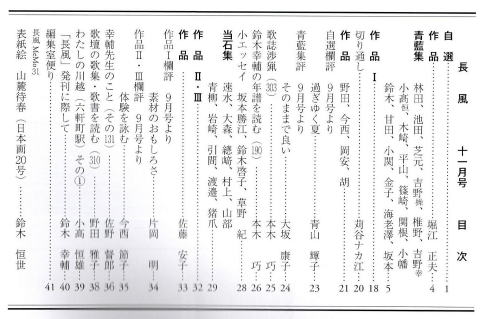 長風 十一月号 目次
自選 1
作品 堀江 正夫 4
青藍集
林田、池田、芝元、吉野鉄、椎野、吉野幸
小髙恒、木崎、平山、篠崎、関根、小幡
鈴木、甘田、小関、金子、海老澤、坂本 5
作品 Ⅰ 18
切り通し 苅谷ナカ江 20
作品 野田、今西、岡安、胡 21
自選欄評 9月号より
過ぎゆく夏 青山 輝子 23
青藍集評 9月号より
そのままで良い 大坂 康子 24
歌誌渉猟(303) 本木 巧 25
鈴木幸輔の年譜を読む(190) 本木 巧 26
小エッセイ 坂本勝江、鈴木啓子、草野 紀 28
当石集 速水、大森、總﨑、村上、山部
青柳、岩崎、引間、渡邉、猪爪 29
作品 Ⅱ・Ⅲ 32
作品 佐藤 安子 33
作品Ⅰ欄評 9月号より
素材のおもしろさ 片岡 明 34
作品Ⅱ・Ⅲ欄評 9月号より
体験を詠む 今西 節子 35
幸輔先生のこと(その131) 佐野 督郎 36
歌壇の歌集・歌書を読む(310) 野田 雅子 38
わたしの川越(六軒町駅、その①) 小髙 恒雄 39
「長風」発刊に際して 鈴木 幸輔 40
編集室便り 41
長風MaMa31
表紙絵 山麓待春(日本画20号) 鈴木 恒世